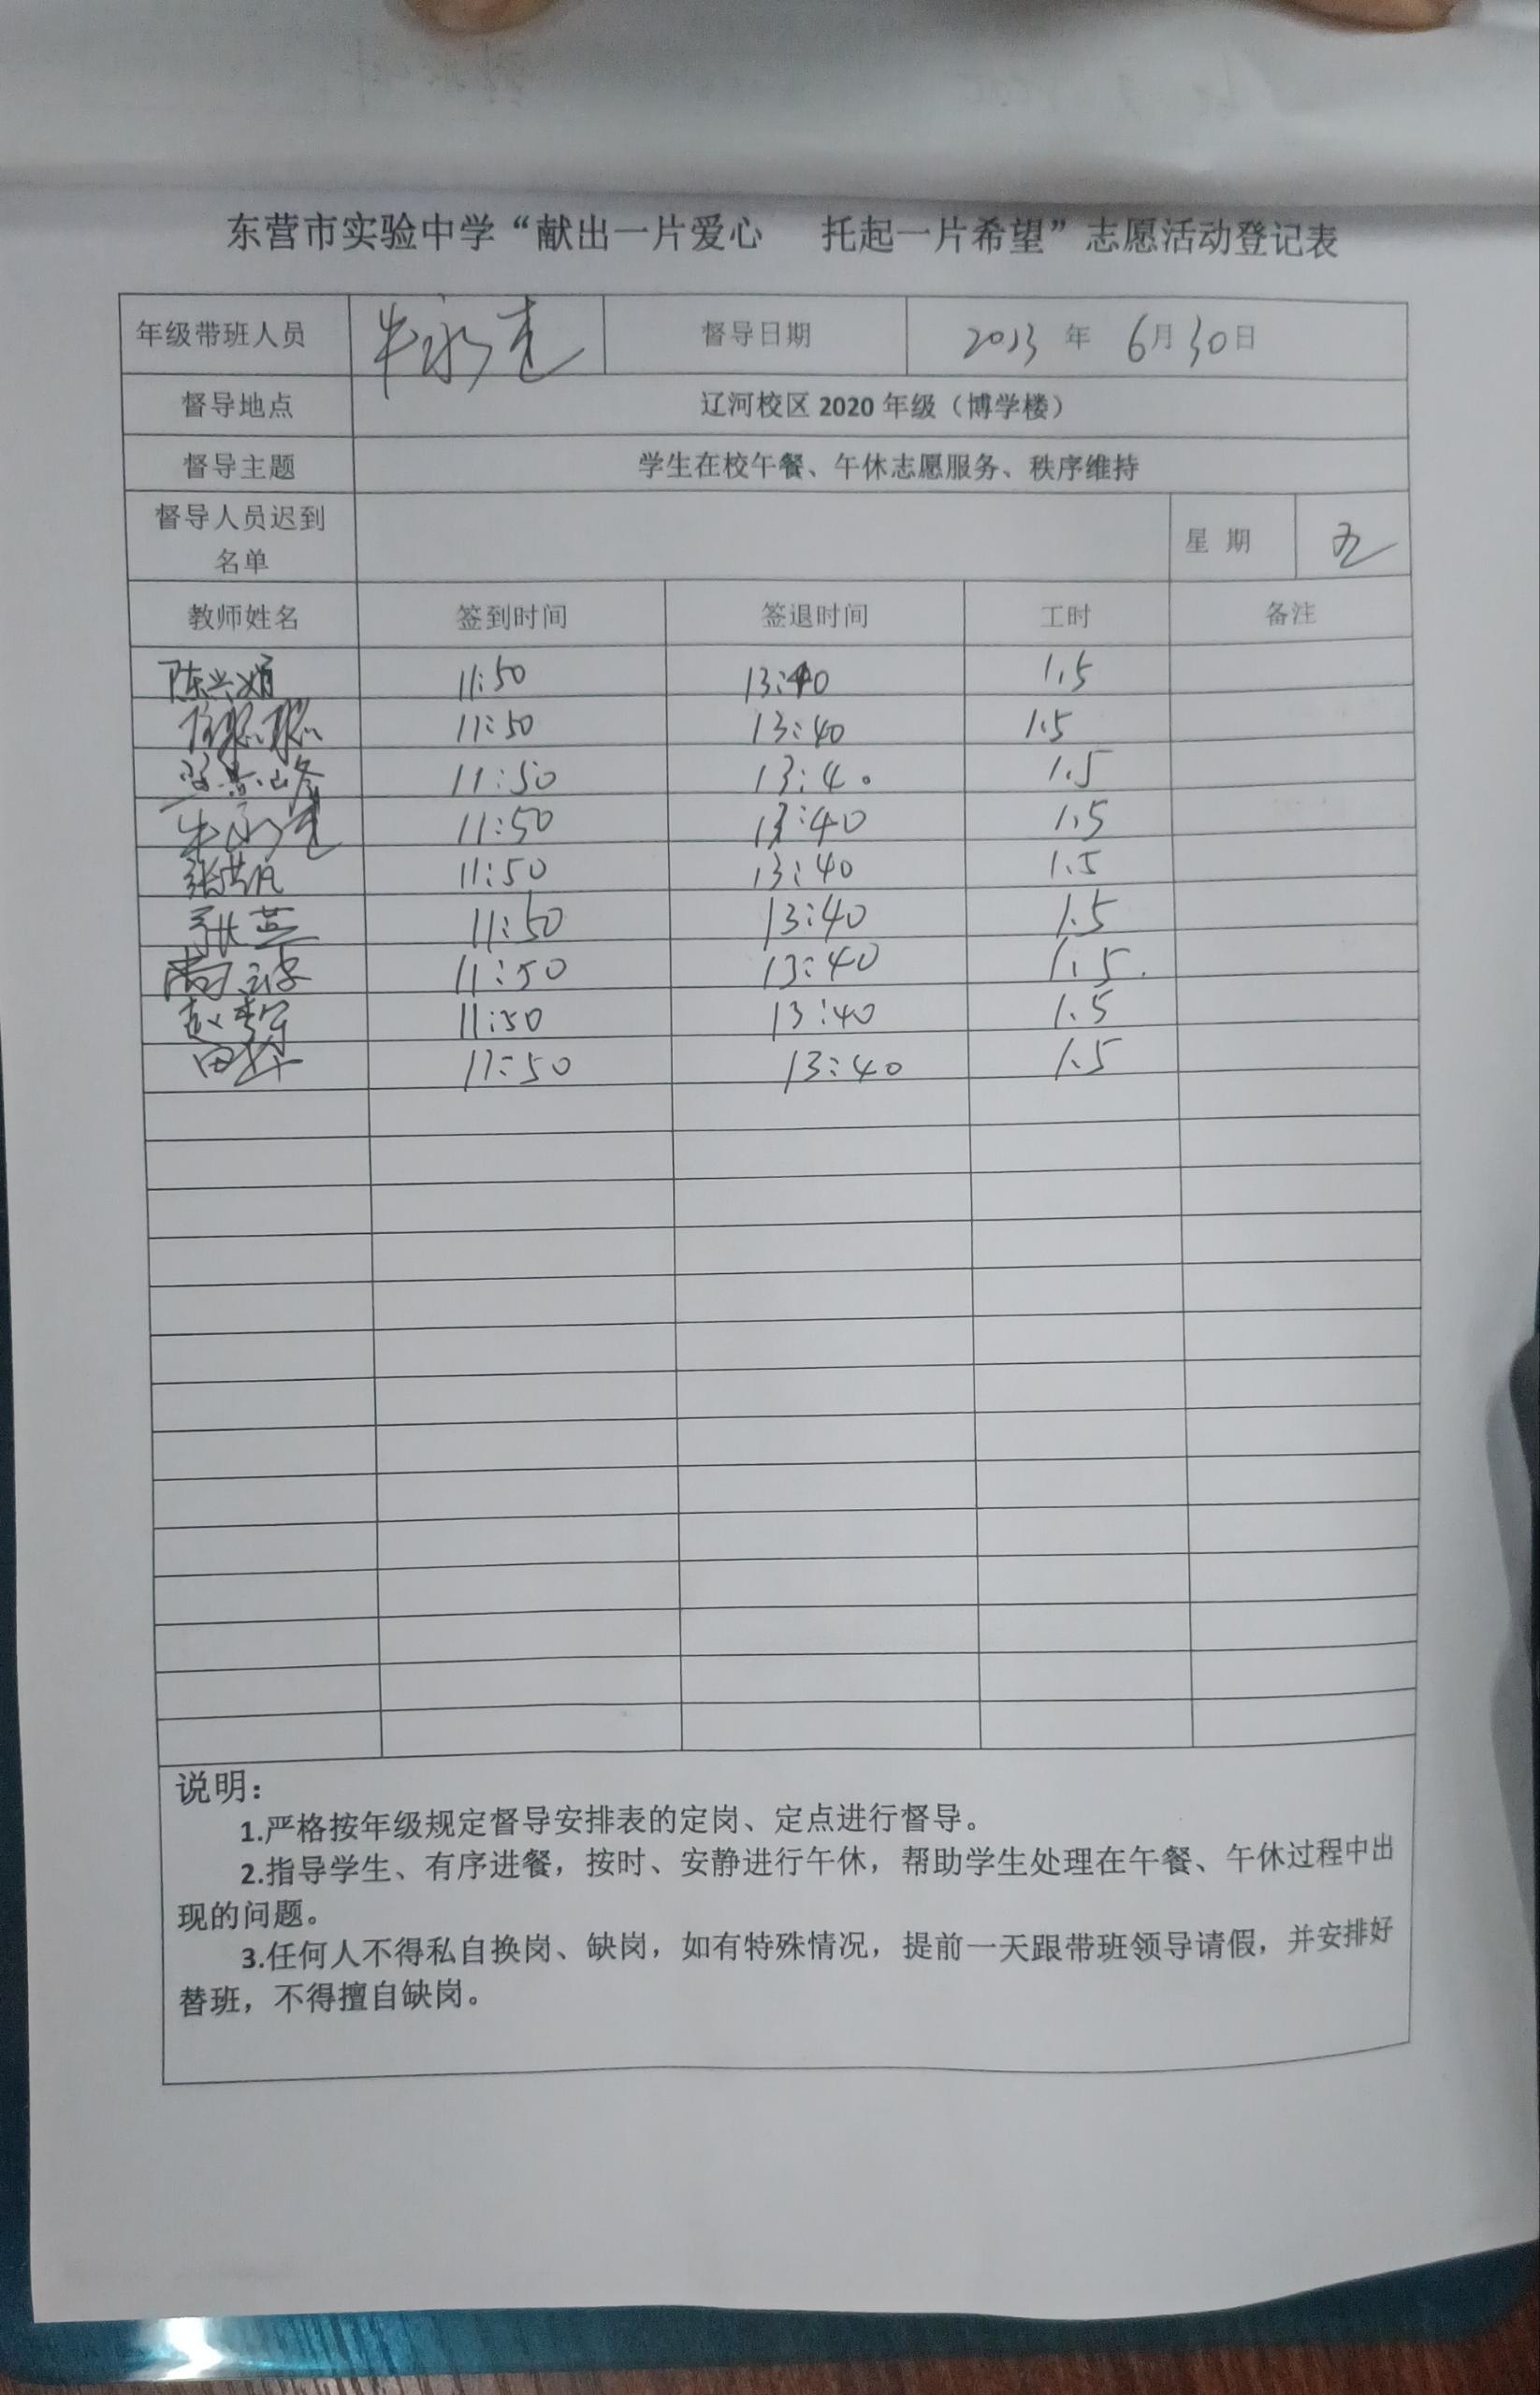 东营市实验中学“献出一片爱心 托起一片希望”志愿活动登记表
年级带班人员 牛永建 督导日期 2023 年 6月30日
督导地点 辽河校区 2020 年级（博学楼）
督导主题 学生在校午餐、午休志愿服务、秩序维持
督导人员迟到
名单
星 期 五
教师姓名 签到时间 签退时间 工时 备注
陈兴娟 11:50 13:40 1.5
徐聪聪 11:50 13:40 1.5
11:50 13:40 1.5
牛永建 11:50 13:40 1.5
张洪凡 11:50 13:40 1.5
张燕 11:50 13:40 1.5
11:50 13:40 1.5
11:50 13:40 1.5
田华 11:50 13:40 1.5
说明：
1.严格按年级规定督导安排表的定岗、定点进行督导。
2.指导学生、有序进餐，按时、安静进行午休，帮助学生处理在午餐、午休过程中出
现的问题。
3.任何人不得私自换岗、缺岗，如有特殊情况，提前一天跟带班领导请假，并安排好
替班，不得擅自缺岗。